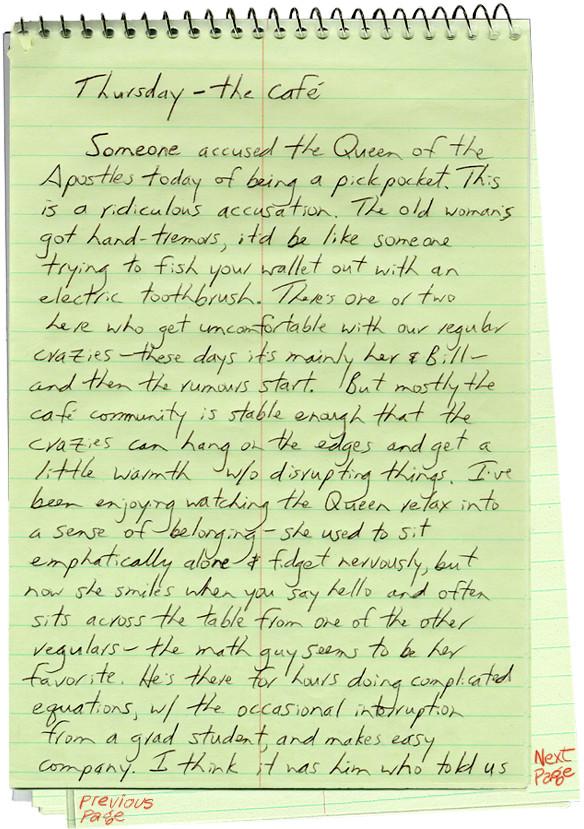 Thursday - the café
Someone accused the Queen of the
Apostles today of being a pickpocket. This
is a ridiculous accusation. The old woman's
got hand-tremors, it'd be like someone
trying to fish your wallet out with an
electric toothbrush. There's one or two
here who get uncomfortable with our regular
crazies - these days it's mainly her & Bill -
and then the rumours start. But mostly the
café community is stable enough that the
crazies can hang on the edges and get a
little warmth w/o disrupting things. I've
been enjoying watching the Queen relax into
a sense of belonging - she used to sit
emphatically alone & fidget nervously, but
now she smiles when you say hello and often
sits across the table from one of the other
regulars - the math guy seems to be her
favorite. He's there for hours doing complicated
equations, w/ the occasional interruption
from a grad student, and makes easy
company. I think it was him who told us
Next
Page
Previous
Page